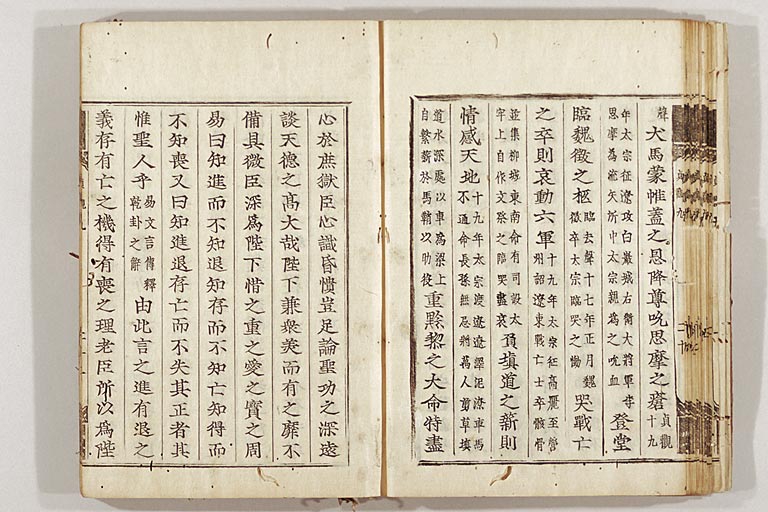 聲犬馬蒙帷蓋之恩降尊吮思摩之瘡貞觀十九
年太宗征遼攻白巖城右衛大將軍李思摩爲流矢所中太宗親爲之吮血登堂
臨魏徵之柩臨去聲十七年正月魏徵卒太宗臨哭之慟哭戰亡
之卒則哀動六軍十九年太宗征高麗至營州詔遼東戰亡士卒骸骨
並集柳城東南命有司設太牢上自作文祭之臨哭盡哀負塡道之薪則
情感天地十九年太宗渡遼遼澤泥潦車馬不通命長孫無忌將萬人剪草塡
道水深處以車爲梁上自繫薪於馬鞘以助役重黔黎之大命特盡
心於庶獄臣心識昏憒豈足論聖功之深遠
談天德之高大哉陛下兼衆美而有之靡不
備具微臣深爲陛下惜之重之愛之寶之周
易曰知進而不知退知存而不知亡知得而
不知喪又曰知進退存亡而不失其正者其
惟聖人乎易文言傳釋乾卦之辭由此言之進有退之
義存有亡之機得有喪之理老臣所以爲陛